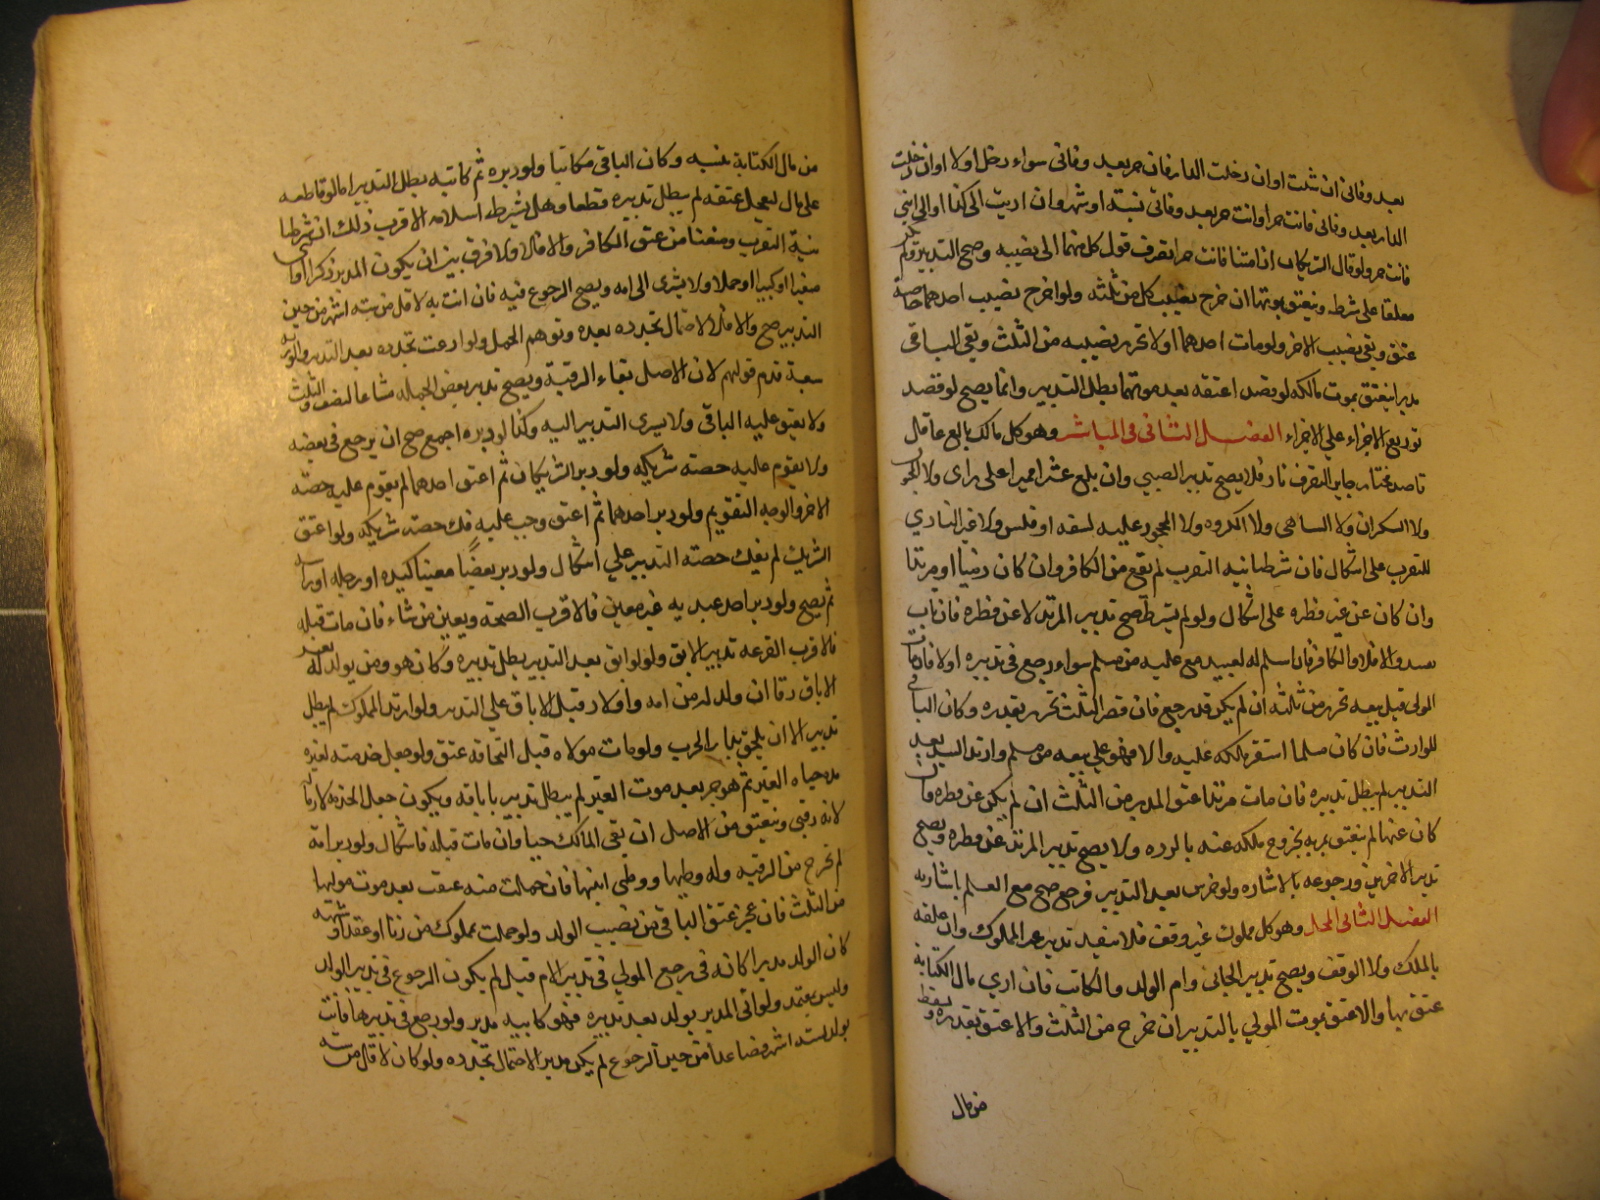 بعد وفاتى ان شئت او ان دخلت الدار فانت حر بعد وفاتى سواء دخل اولا او ان دخلت
الدار بعد وفاتى فانت حر او انت حر بعد وفاتى بسنة او شهر وان اديت الى كذا او الى ابنى
فانت حر ولو قال الشريكان اذا متنا فانت حر انصرف قول كل منهما الى نصيبه وصح التدبير ولم يكن
معلقا على شرط وينعتق بموتهما ان خرج نصيب كل من ثلثه ولو خرج نصيب احدهما خاصة
عتق وبقى نصيب الاخر ولو مات احدهما اولا تحرر نصيبه من الثلث وبقى الباقى
مدبرا ينعتق بموت مالكه لو قصد اعتقه بعد موتهما بطل التدبير وانما يصح لو قصد
توزيع الاجزاء على الاجزاء الفصل الثانى فى المباشر وهو كل مالك بالغ عاقل
قاصد مختار جايز التصرف ناو فلا يصح تدبير الصبى وان بلغ عشرا مميزا على راى ولا المجنون
ولا السكران ولا الساهى ولا المكروه ولا المحجور عليه لسفه او فلس ولا غير الناوى
للتقرب على اشكال فان شرطنا نية التقرب لم يقع من الكافر وان كان ذميا او مرتدا
وان كان عن غير فطره على اشكال ولو لم يشترط صح تدبير المرتد لا عن فطره فان تاب
نفذ والا فلا والكافر فان اسلم له لعبيد بيع عليه من مسلم سواء رجع فى تدبيره اولا فان مات
المولى قبل بيعه تحرر من ثلثه ان لم يكن قد رجع فان قصر الثلث تحرر بقدره وكان الباقى
للوارث فان كان مسلما استقر ملكه عليه والا فهو على بيعه من مسلم ولو ارتد السيد بعد
التدبير لم يبطل تدبيره فان مات مرتدا عتق المدبر من الثلث ان لم يكن عن فطره فان
كان عنها لم ينعتق بموته بخروج ملكه عنه بالرده ولا يصح تدبير المرتد عن فطره ويصح
تدبير الاخرس ورجوعه بالاشاره ولو خرس بعد التدبير فرجع صح مع العلم باشارته
الفصل الثانى المحل وهو كل مملوك غير وقف فلا ينفذ تدبير غير المملوك وان علقه
بالملك ولا الوقف ويصح تدبير الجانى وام الولد والمكاتب فان ادى مال الكتابة
عتق بها والا عتق بموت المولى بالتدبير ان خرج من الثلث والا عتق بقدره وسقط
من مال
من مال الكتابة بنسبه وكان الباقى مكاتبا ولو دبره ثم كاتبه بطل التدبير اما لو قاطعه
على مال ليعجل عتقه لم يبطل تدبيره قطعا وهل يشترط اسلامه الاقرب ذلك ان شرطنا
نية التقرب ومنعنا من عتق الكافر والا فلا ولا فرق بين ان يكون المدبر ذكرا او انثى
صغيرا او كبيرا او حملا ولا يسرى الى امه ويصح الرجوع فيه فان اتت به لاقل من ستة اشهر من حين
التدبير صح والا فلا لاحتمال تجدده بعده وتوهم الحمل ولو ادعت تجدده بعد التدبير والورثه
سبقه قدم قولهم لان الاصل بقاء الرقية ويصح تدبير بعض الجمله مشاعا كنصف والثلث
ولا ينعتق عليه الباقى ولا يسرى التدبير اليه وكذا لو دبره اجمع صح ان يرجع فى بعضه
ولا يقوم عليه حصة شريكه ولو دبر الشريكان ثم اعتق احدهما لم يقوم عليه حصة
الاخر والوجه التقويم ولو دبر احدهما ثم اعتق وجب عليه فك حصة شريكه ولو اعتق
الشريك لم يفك حصته التدبير على اشكال ولو دبر بعضا معينا كيده او رجله او راسه
لم يصح ولو دبر احد عبديه غير معين فالاقرب الصحه ويعين من شاء فان مات قبله
فالاقرب القرعه تدبير الابق ولو ابق بعد التدبير بطل تدبيره وكان هو ومن يولد له بعد
الاباق رقا ان ولد له من امه واولاده قبل الاباق على التدبير ولو ارتد المملوك لم يبطل
تدبيره الا ان يلتحق بدار الحرب ولو مات مولاه قبل التحاقه عتق ولو جعل خدمته لغيره
مده حياه الغير ثم هو حر بعد موت الغير لم يبطل تدبيره باباقه ويكون جعل الخدمه لازما
لانه رقبى وينعتق من الاصل ان بقى المالك حيا وان مات قبله فاشكال ولو دبر امة
لم تخرج من الرقيه وله وطيها ووطى ابنتها فان حملت منه عتقت بعد موت مولها
من الثلث فان عجز عتق الباقى من نصيب الولد ولو حملت بمملوك من زنا او عقد او شبهه
كان الولد مدبرا كامه فى رجع المولى فى تدبير الام قيل لم يكون الرجوع فى تدبير الولد
وليس بمعتمد ولو اتى المدبر بولد بعد تدبيره فهو كابيه مدبر ولو رجع فى تدبيرها فاتت
بولد لسته اشهر فصاعدا من حين الرجوع لم يكن مدبرا لاحتمال تجدده ولو كان لاقل من سته